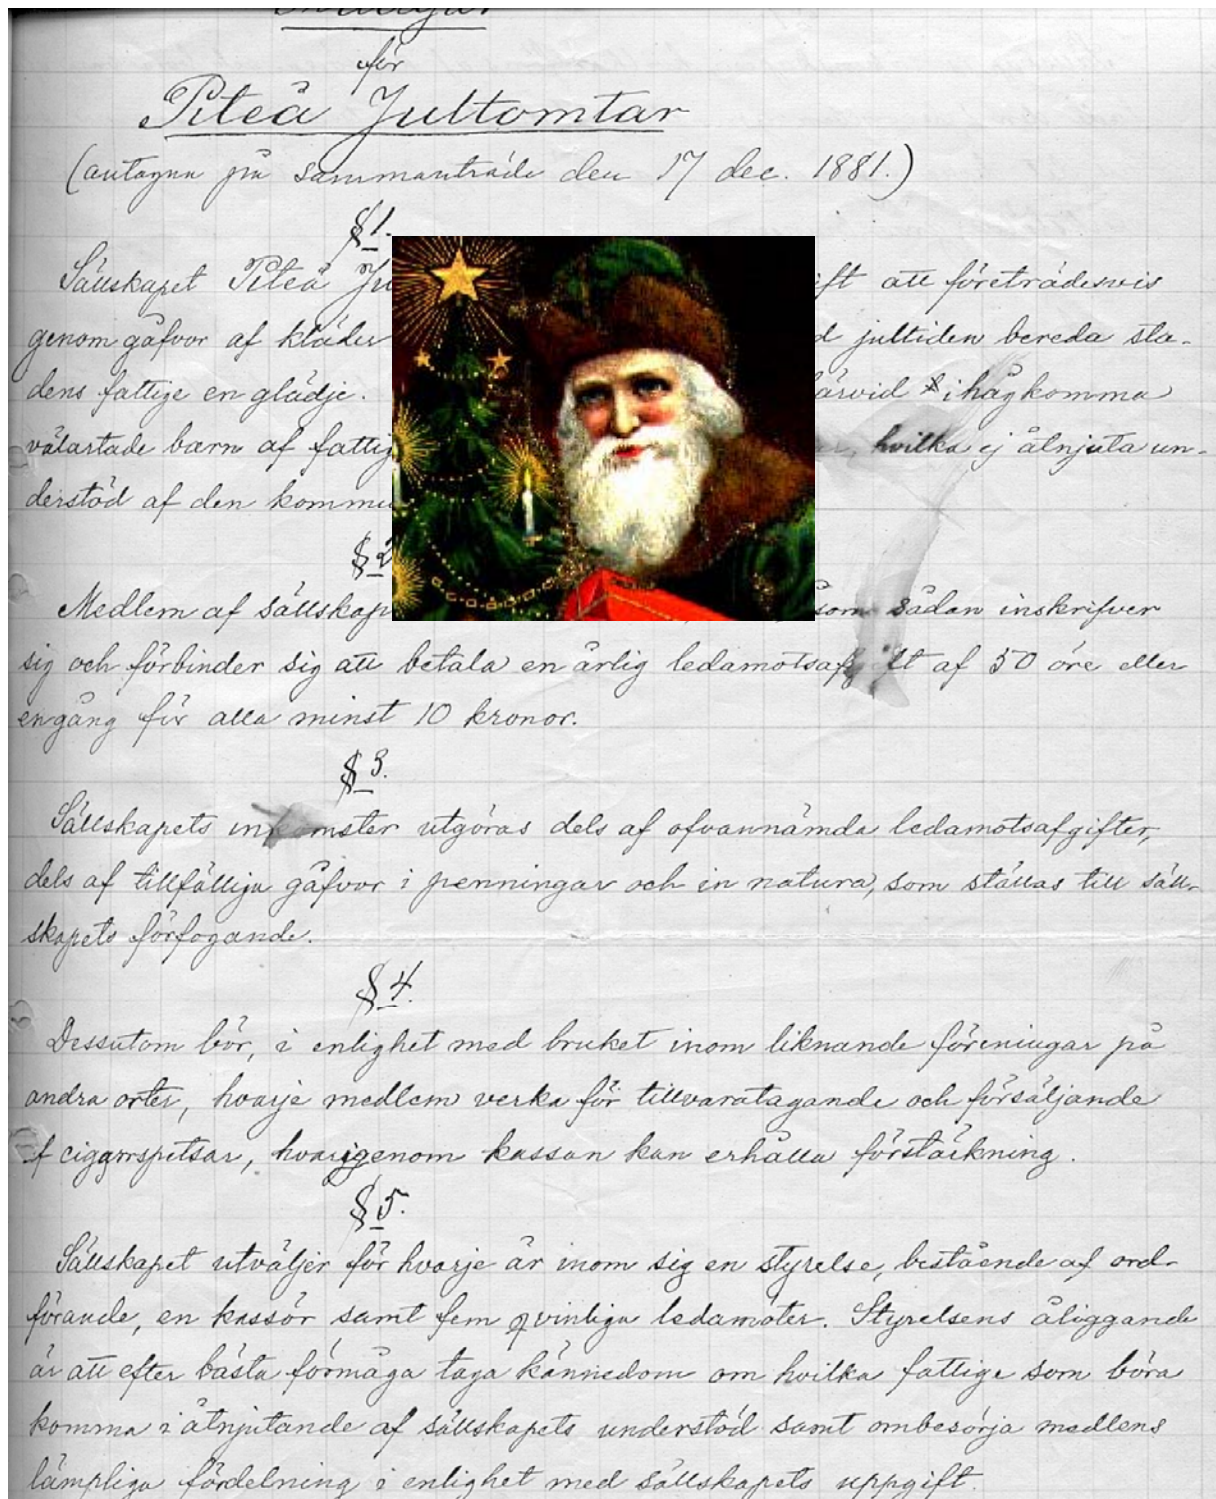 för
Piteå Jultomtar
(antagna på sammanträde den 17 dec. 1881.)
§ 1.
Sällskapet Piteå Ju ift att företrädesvis
genom gåfvor af kläder d jultiden bereda sta-
dens fattige en glädje. ärvid ihågkomma
välartade barn af fattig hvilka ej åtnjuta un-
derstöd af den kommu
§ 2
Medlem af sällskap som sådan inskrifver
sig och förbinder sig att betala en årlig ledamotsafgift af 50 öre eller
engång för alla minst 10 kronor.
§ 3.
Sällskapets inkomster utgöras dels af ofvannämda ledamotsafgifter,
dels af tillfälliga gåfvor i penningar och in natura, som ställas till säll-
skapets förfogande.
§ 4.
Dessutom bör, i enlighet med bruket inom liknande föreningar på
andra orter, hvarje medlem verka för tillvaratagande och försäljande
af cigarrspetsar, hvarigenom kassan kan erhålla förstärkning.
§ 5.
Sällskapet utväljer för hvarje år inom sig en styrelse, bestående af ord-
förande, en kassör samt fem qvinliga ledamöter. Styrelsens åliggande
är att efter bästa förmåga taga kännedom om hvilka fattige som böra
komma i åtnjutande af sällskapets understöd samt ombesörja medlens
lämpliga fördelning i enlighet med sällskapets uppgift.